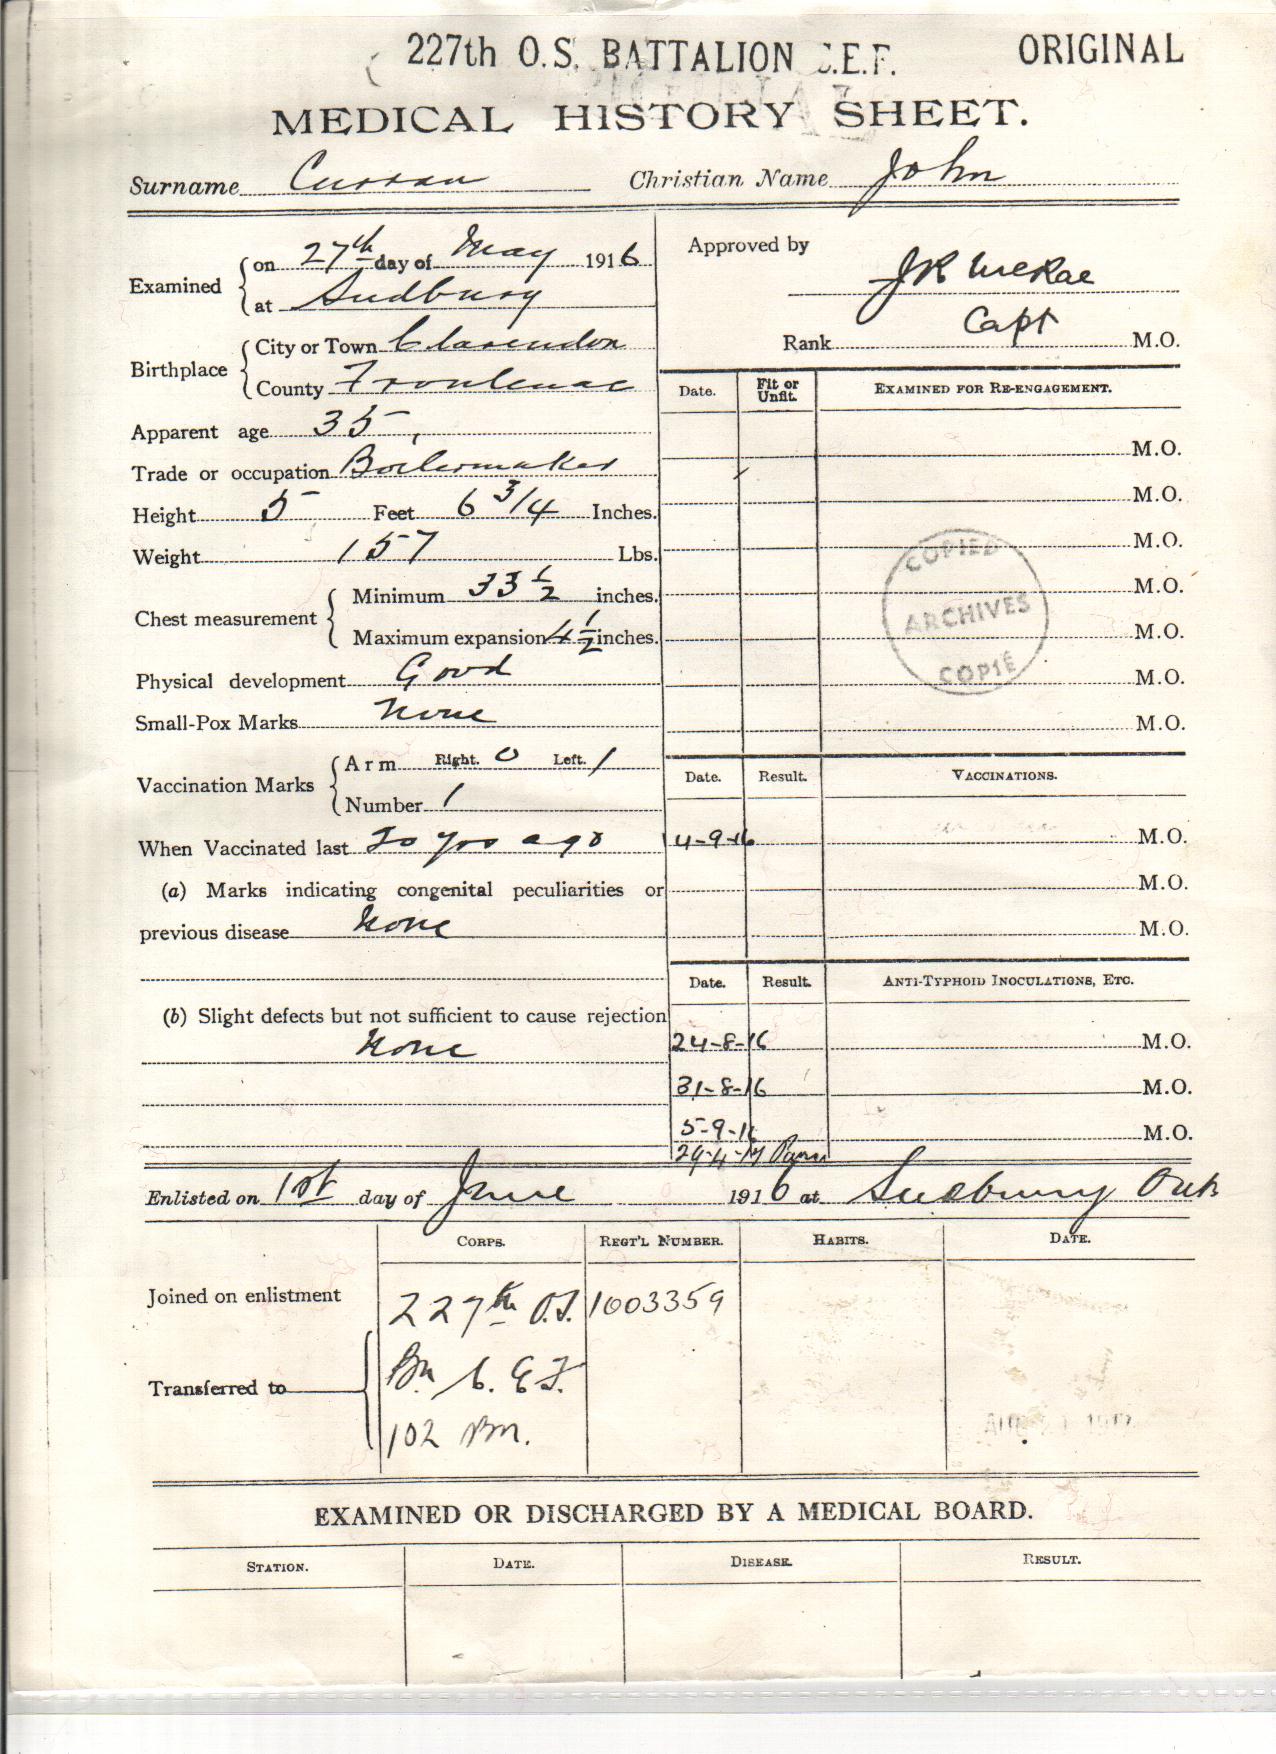 227th O.S. BATTALION C.E.F. ORIGINAL
MEDICAL HISTORY SHEET.
Surname Curran Christian Name John
Examined { on 27th day of May 1916
at Sudbury
Approved by JR McRae
Rank Capt M.O.
Birthplace { City or Town Clarendon
County Frontenac
Apparent age 35
Trade or occupation Boilermaker
Height 5 Feet 6 3/4 Inches.
Weight 157 Lbs.
Chest measurement { Minimum 33 1/2 inches.
Maximum expansion 4 1/2 inches.
Physical development Good
Small-Pox Marks None
Vaccination Marks { Arm Right. 0 Left. 1
Number 1
When Vaccinated last yrs ago
(a) Marks indicating congenital peculiarities or
previous disease None
(b) Slight defects but not sufficient to cause rejection
None
Date. Fit or Unfit. EXAMINED FOR RE-ENGAGEMENT.
M.O.
M.O.
M.O.
M.O.
M.O.
M.O.
M.O.
COPIED
ARCHIVES
COPIÉ
Date. Result. VACCINATIONS.
14-9-16 M.O.
M.O.
M.O.
Date. Result. ANTI-TYPHOID INOCULATIONS, ETC.
24-8-16 M.O.
31-8-16 M.O.
5-9-16 M.O.
29-4-17
Enlisted on 1st day of June 1916 at Sudbury Ont
CORPS. REGT'L NUMBER. HABITS. DATE.
Joined on enlistment 227th O.S. 1003359
Transferred to Bn C.E.F.
102 Bn.
EXAMINED OR DISCHARGED BY A MEDICAL BOARD.
STATION. DATE. DISEASE. RESULT.